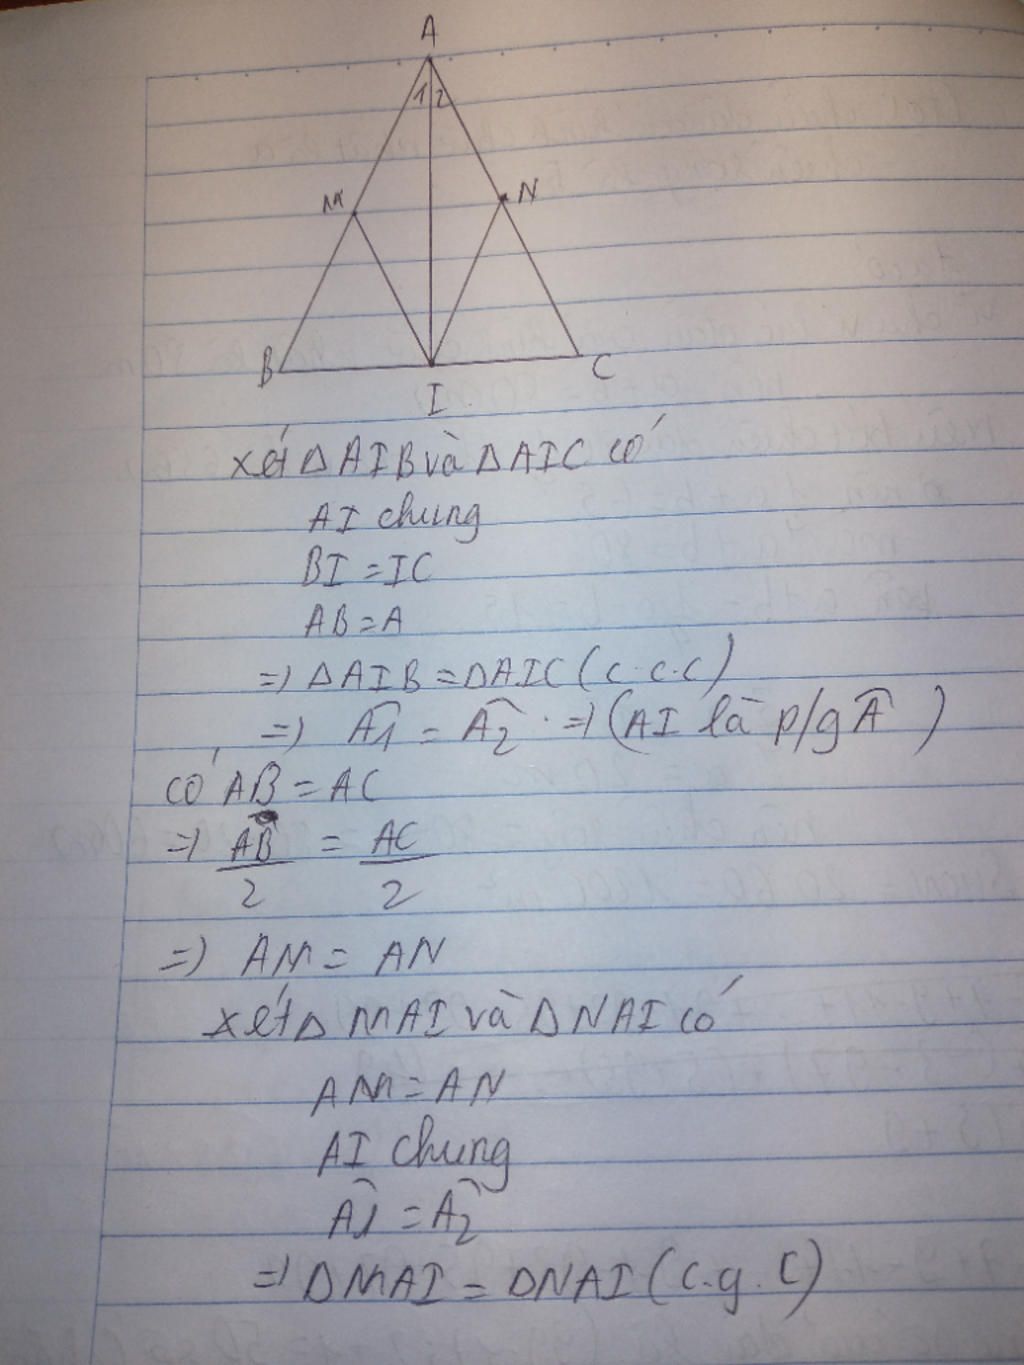 A
1 2
M N
B C
I
xét Δ AIB và Δ AIC có
AI chung
BI = IC
AB = A
=) Δ AIB = ΔAIC (c.c.c)
=) Â1 = Â2 . =) (AI là p/g Â )
có AB = AC
=) AB/2 = AC/2
=) AM = AN
xét Δ MAI và Δ NAI có
AM = AN
AI chung
Â1 = Â2
=) ΔMAI = ΔNAI (c.g.c)